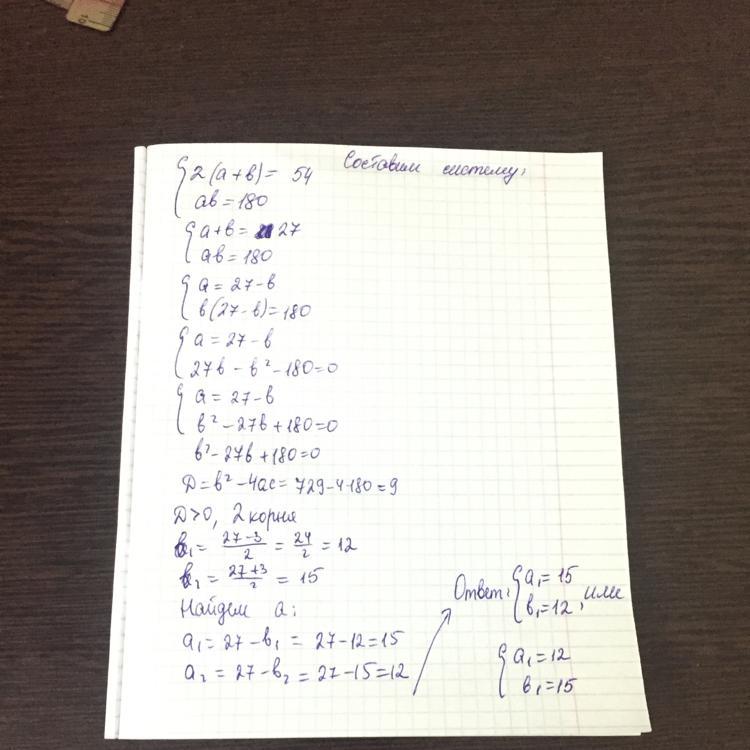 Составим систему:
{2(a+b)= 54
ab=180
{a+b= 27
ab=180
{a= 27-b
b(27-b)=180
{a= 27-b
27b-b²-180=0
{a= 27-b
b²-27b+180=0
b²-27b+180=0
D=b²-4ac=729-4·180=9
D>0, 2 корня
b₁= (27-3)/2 = 24/2 = 12
b₂= (27+3)/2 = 15
Найдем a:
a₁=27-b₁ = 27-12=15
a₂= 27-b₂ = 27-15=12
Ответ: {a₁=15
b₁=12, или
{a₁=12
b₁=15